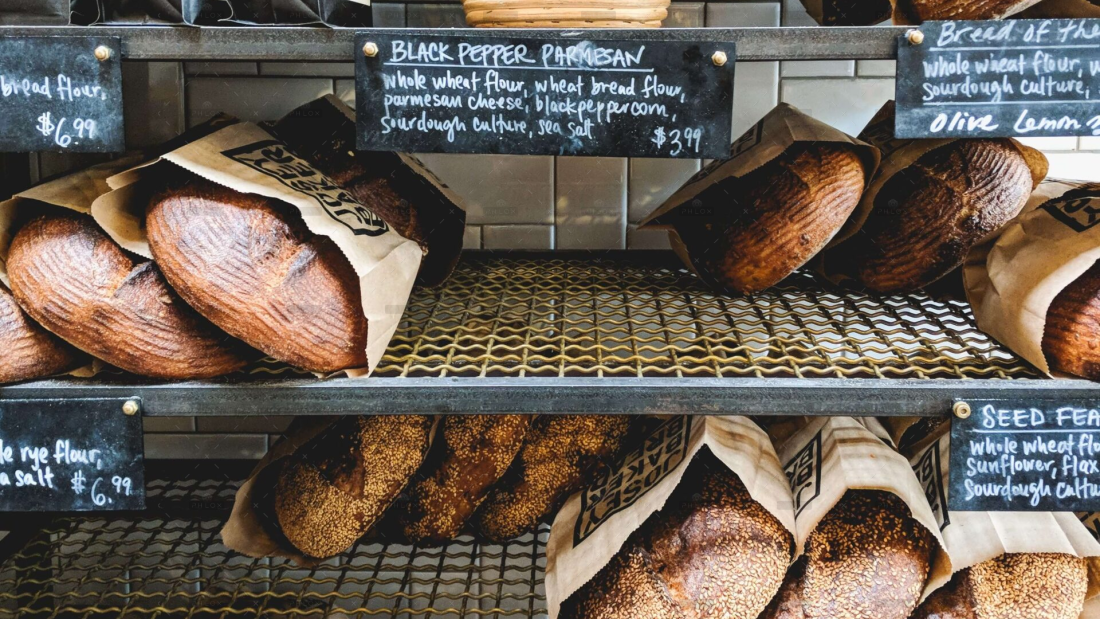 bread flour,
$6.99
BLACK PEPPER PARMESAN
whole wheat flour, wheat bread flour,
parmesan cheese, blackpeppercorn,
Sourdough culture, sea salt
$3.99
Bread of the
whole wheat flour, w
Sourdough culture,
Olive Lemon
JOSEY
BAKER
BREAD
le rye flour,
a salt $6.99
JOSEY
BAKER
BR
SEED FEA
whole wheat flo
Sunflower, flax
Sourdough cultu